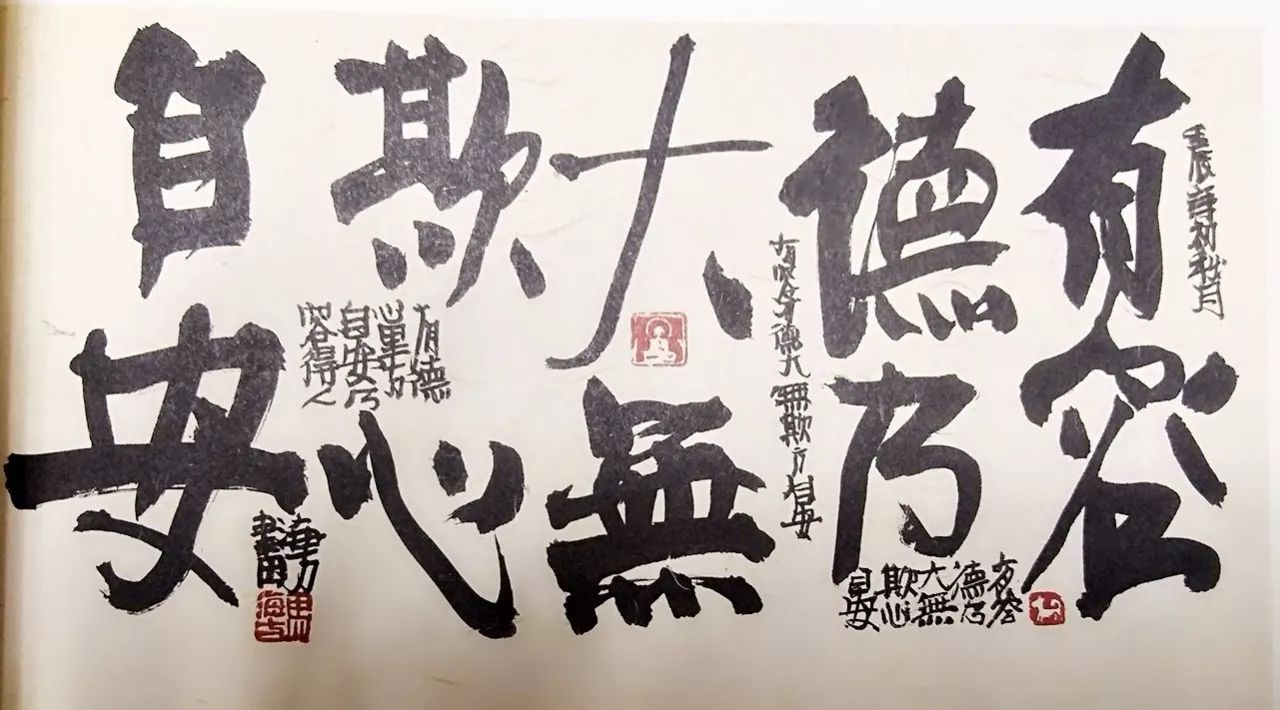 壬辰初秋月
有容
德乃
大無
欺心
自安
德大無欺方自安
有容
德乃
大無
欺心
自安
有德
自安乃
容得人
書画